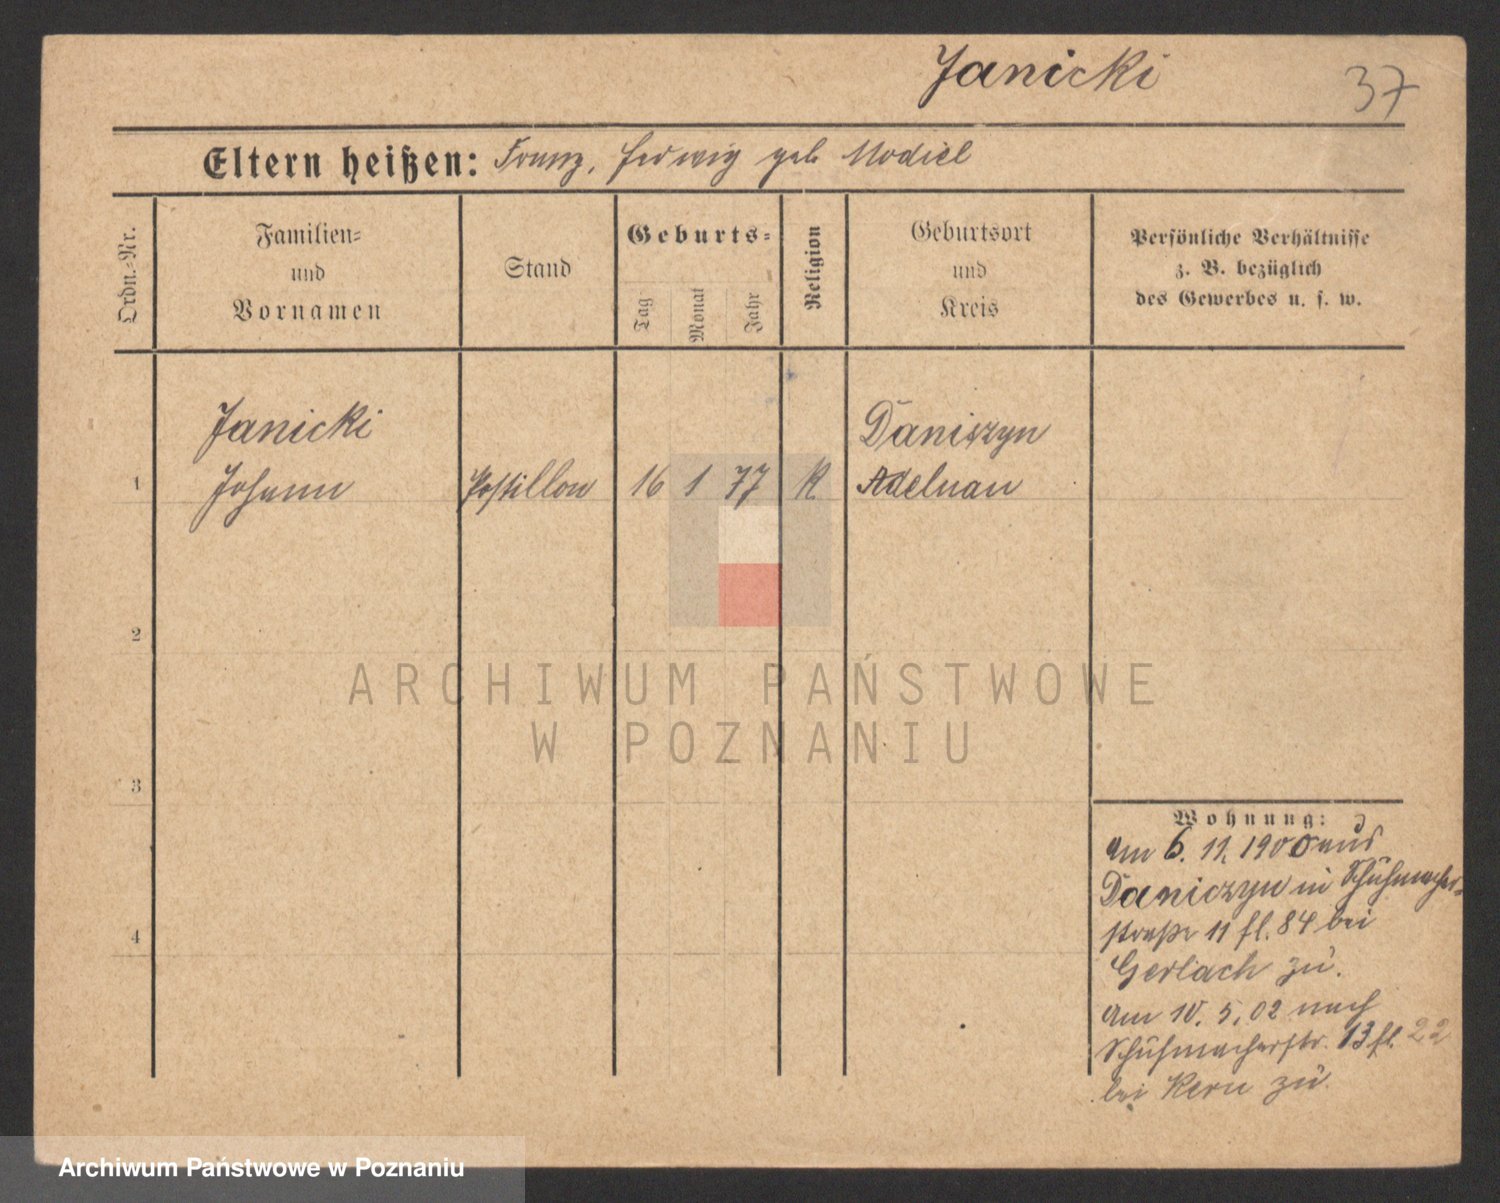 Janicki
37
Eltern heißen: Franz, Hedwig geb Modiel
Ordn.-Nr.
Familien-
und
Vornamen
Stand
Geburts-
Tag
Monat
Jahr
Religion
Geburtsort
und
Kreis
Persönliche Verhältnisse
z. B. bezüglich
des Gewerbes u. s. w.
Janicki
Daniszyn
1 Johann Postillon 16 1 77 K Adelnau
2
3
4
Wohnung:
Am 6. 11. 1900 aus
Daniczyn in Schuhmacher-
straße 11 fl. 84 bei
Gerlach zu.
Am 10. 5. 02 nach
Schuhmacherstr. 13 fl. 22
bei Kern zu.
ARCHIWUM PAŃSTWOWE
W POZNANIU
Archiwum Państwowe w Poznaniu